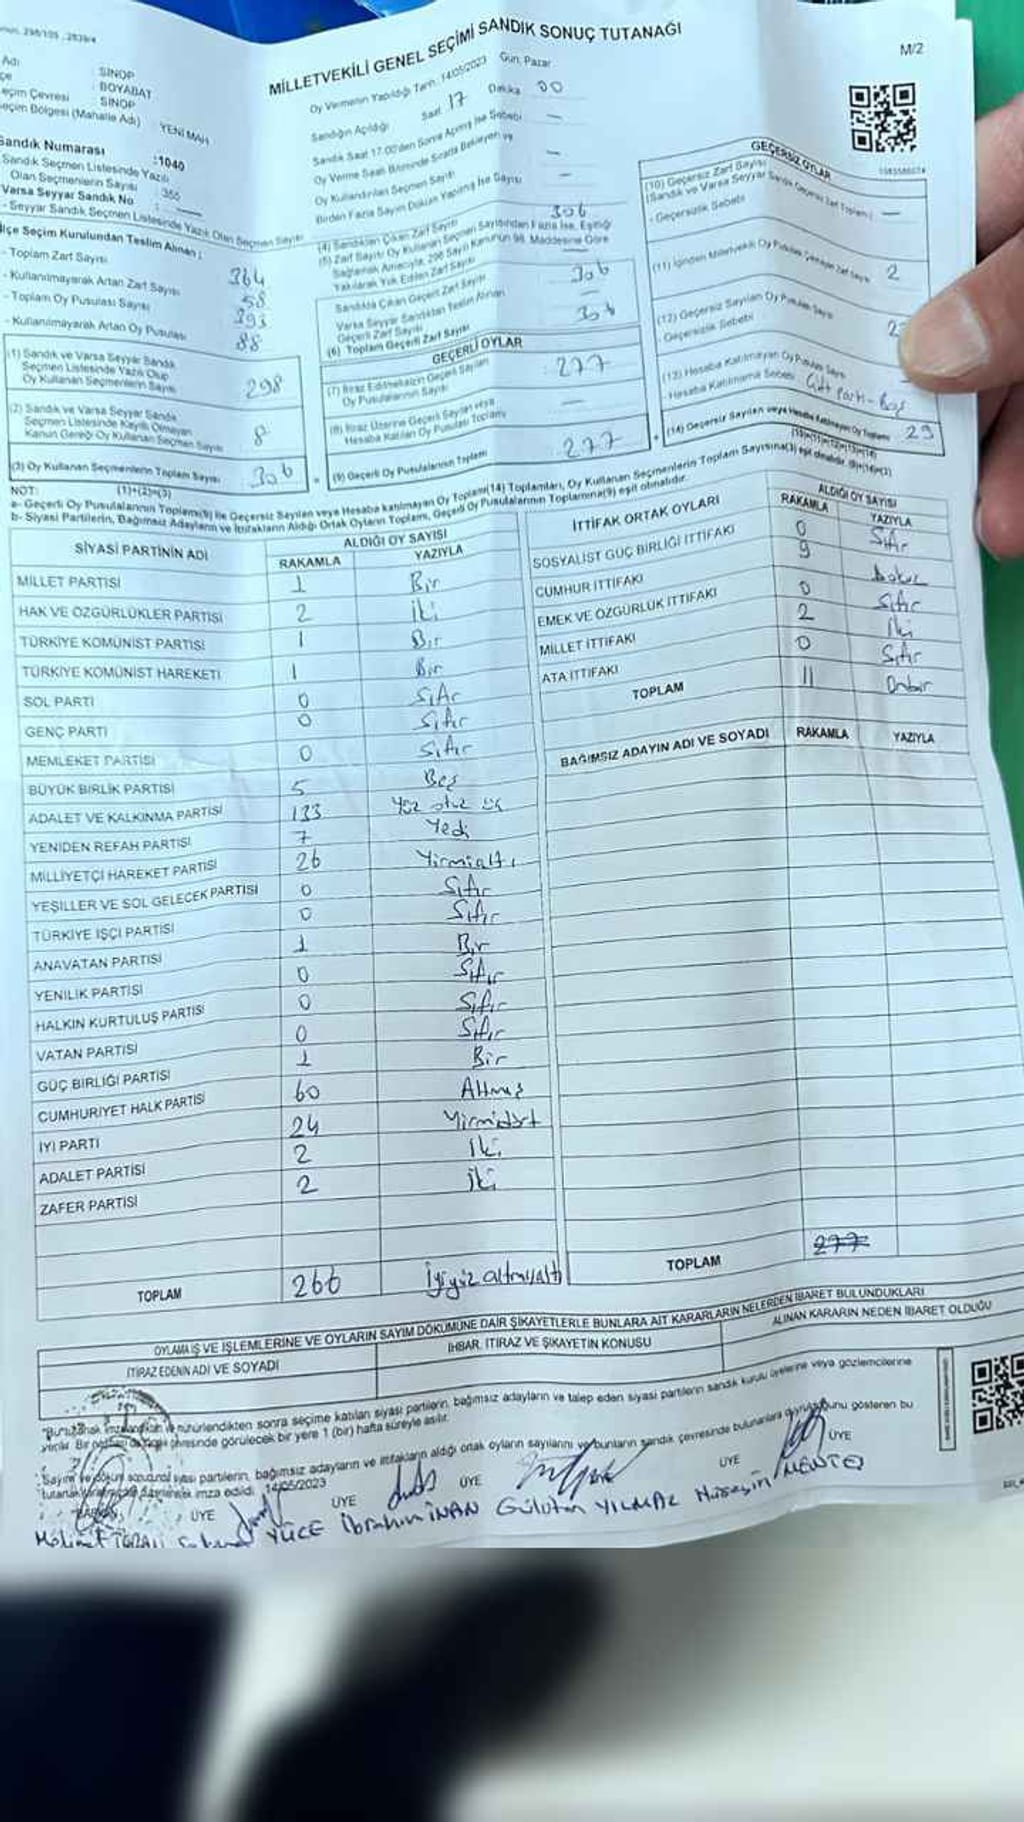 MİLLETVEKİLİ GENEL SEÇİMİ SANDIK SONUÇ TUTANAĞI
M/2
Oy Vermenin Yapıldığı Tarih: 14/05/2023 Gün: Pazar
Adı : SİNOP
: BOYABAT
eçim Çevresi : SİNOP
eçim Bölgesi (Mahalle Adı) : YENİ MAH
Sandık Numarası :1040
Sandık Seçmen Listesinde Yazılı
Olan Seçmenlerin Sayısı : 355
Varsa Seyyar Sandık No :
- Seyyar Sandık Seçmen Listesinde Yazılı Olan Seçmen Sayısı
İlçe Seçim Kurulundan Teslim Alınan :
- Toplam Zarf Sayısı 364
- Kullanılmayarak Artan Zarf Sayısı 58
- Toplam Oy Pusulası Sayısı 393
- Kullanılmayarak Artan Oy Pusulası 88
(1) Sandık ve Varsa Seyyar Sandık
Seçmen Listesinde Yazılı Olup
Oy Kullanan Seçmenlerin Sayısı 298
(2) Sandık ve Varsa Seyyar Sandık
Seçmen Listesinde Kayıtlı Olmayan
Kanun Gereği Oy Kullanan Seçmen Sayısı 8
(3) Oy Kullanan Seçmenlerin Toplam Sayısı 306
(1)+(2)=(3)
Sandığın Açıldığı Saat 17 Dakika 00
Sandık Saat 17.00'den Sonra Açılmış İse Sebebi —
Oy Verme Saati Bitiminde Sırada Bekleyen ve
Oy Kullandırılan Seçmen Sayısı —
Birden Fazla Sayım Döküm Yapılmış İse Sayısı —
(4) Sandıktan Çıkan Zarf Sayısı 306
(5) Zarf Sayısı Oy Kullanan Seçmen Sayısından Fazla İse, Eşitliği
Sağlamak Amacıyla, 298 Sayılı Kanunun 98. Maddesine Göre
Yakılarak Yok Edilen Zarf Sayısı
Sandıkta Çıkan Geçerli Zarf Sayısı 306
Varsa Seyyar Sandıktan Teslim Alınan
Geçerli Zarf Sayısı —
(6) Toplam Geçerli Zarf Sayısı 306
GEÇERLİ OYLAR
(7) İtiraz Edilmeksizin Geçerli Sayılan
Oy Pusulasının Sayısı 277
(8) İtiraz Üzerine Geçerli Sayılan veya
Hesaba Katılan Oy Pusulası Toplamı —
(9) Geçerli Oy Pusulalarının Toplamı 277
GEÇERSİZ OYLAR
(10) Geçersiz Zarf Sayısı
(Sandık ve Varsa Seyyar Sandık Geçersiz Zarf Toplamı) —
- Geçersizlik Sebebi
2
(12) Geçersiz Sayılan Oy Pusulası Sayısı
Geçersizlik Sebebi
(13) Hesaba Katılmayan Oy Pusulası Sayısı
Hesaba Katılmama Sebebi
(14) Geçersiz Sayılan veya Hesaba Katılmayan Oy Toplamı 29
(10)+(11)+(12)+(13)=(14)
NOT:
a- Geçerli Oy Pusulalarının Toplamı(9) ile Geçersiz Sayılan veya Hesaba katılmayan Oy Toplam(14) Toplamları, Oy Kullanan Seçmenlerin Toplam Sayısına(3) eşit olmalıdır. (9)+(14)=(3)
b- Siyasi Partilerin, Bağımsız Adayların ve İttifakların Aldığı Ortak Oyların Toplamı, Geçerli Oy Pusulalarının Toplamına(9) eşit olmalıdır.
SİYASİ PARTİNİN ADI ALDIĞI OY SAYISI
RAKAMLA YAZIYLA
MİLLET PARTİSİ 1 Bir
HAK VE ÖZGÜRLÜKLER PARTİSİ 2 İki
TÜRKİYE KOMÜNİST PARTİSİ 1 Bir
TÜRKİYE KOMÜNİST HAREKETİ 1 Bir
SOL PARTİ 0 Sıfır
GENÇ PARTİ 0 Sıfır
MEMLEKET PARTİSİ 0 Sıfır
BÜYÜK BİRLİK PARTİSİ 5 Beş
ADALET VE KALKINMA PARTİSİ 133 Yüz otuz üç
YENİDEN REFAH PARTİSİ 7 Yedi
MİLLİYETÇİ HAREKET PARTİSİ 26 Yirmialtı
YEŞİLLER VE SOL GELECEK PARTİSİ 0 Sıfır
TÜRKİYE İŞÇİ PARTİSİ 0 Sıfır
ANAVATAN PARTİSİ 1 Bir
YENİLİK PARTİSİ 0 Sıfır
HALKIN KURTULUŞ PARTİSİ 0 Sıfır
VATAN PARTİSİ 0 Sıfır
GÜÇ BİRLİĞİ PARTİSİ 1 Bir
CUMHURİYET HALK PARTİSİ 60 Altmış
İYİ PARTİ 24 Yirmidört
ADALET PARTİSİ 2 İki
ZAFER PARTİSİ 2 İki
TOPLAM 266 İyiyüz altmışaltı
İTTİFAK ORTAK OYLARI ALDIĞI OY SAYISI
RAKAMLA YAZIYLA
SOSYALİST GÜÇ BİRLİĞİ İTTİFAKI 0 Sıfır
CUMHUR İTTİFAKI 9 Dokuz
EMEK VE ÖZGÜRLÜK İTTİFAKI 0 Sıfır
MİLLET İTTİFAKI 2 İki
ATA İTTİFAKI 0 Sıfır
TOPLAM 11 Onbir
BAĞIMSIZ ADAYIN ADI VE SOYADI RAKAMLA YAZIYLA
TOPLAM 277
OYLAMA İŞ VE İŞLEMLERİNE VE OYLARIN SAYIM DÖKÜMÜNE DAİR ŞİKAYETLERLE BUNLARA AİT KARARLARIN NELERDEN İBARET BULUNDUKLARI
İTİRAZ EDENİN ADI VE SOYADI İHBAR, İTİRAZ VE ŞİKAYETİN KONUSU ALINAN KARARIN NEDEN İBARET OLDUĞU
sonra seçime katılan siyasi partilerin, bağımsız adayların ve talep eden siyasi partilerin sandık kurulu üyelerine veya gözlemcilerine
çevresinde görülecek bir yere 1 (bir) hafta süreyle asılır.
siyasi partilerin, bağımsız adayların ve ittifakların aldığı ortak oyların sayılarını ve bunların sandık çevresinde bulunanlara
imza edildi. 14/05/2023
ÜYE ÜYE ÜYE ÜYE ÜYE
YÜCE İbrahim İNAN YILMAZ Hüseyin